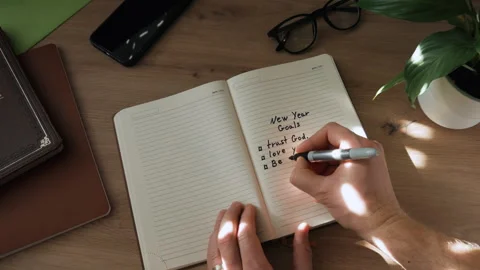 New Year
Goals
trust God,
love y
Be